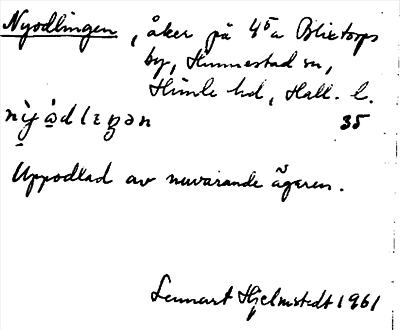 Nyodlingen, åker på 4⁵a Blixtorps
by, Hunnestad sn,
Himle hd, Hall. l.
35
Uppodlad av nuvarande ägaren.
Lennart Hjelmstedt 1961